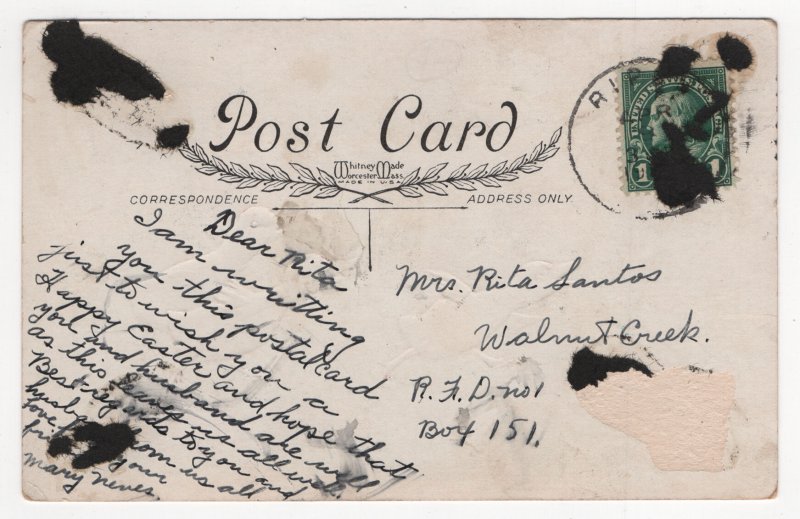 Post Card
Whitney Made
Worcester Mass.
MADE IN U.S.A.
CORRESPONDENCE
ADDRESS ONLY.
RIP
UNITED STATES
1
1
Dear Rita
I am writting
you this postalcard
just to wish you a
Happy Easter and hope that
you and husband are well
as this leaves us all well.
Best reg to you and
husband from us all
love
from your
mary neves.
Mrs. Rita Santos
Walnut Creek.
R.F.D. no 1
Box 151.